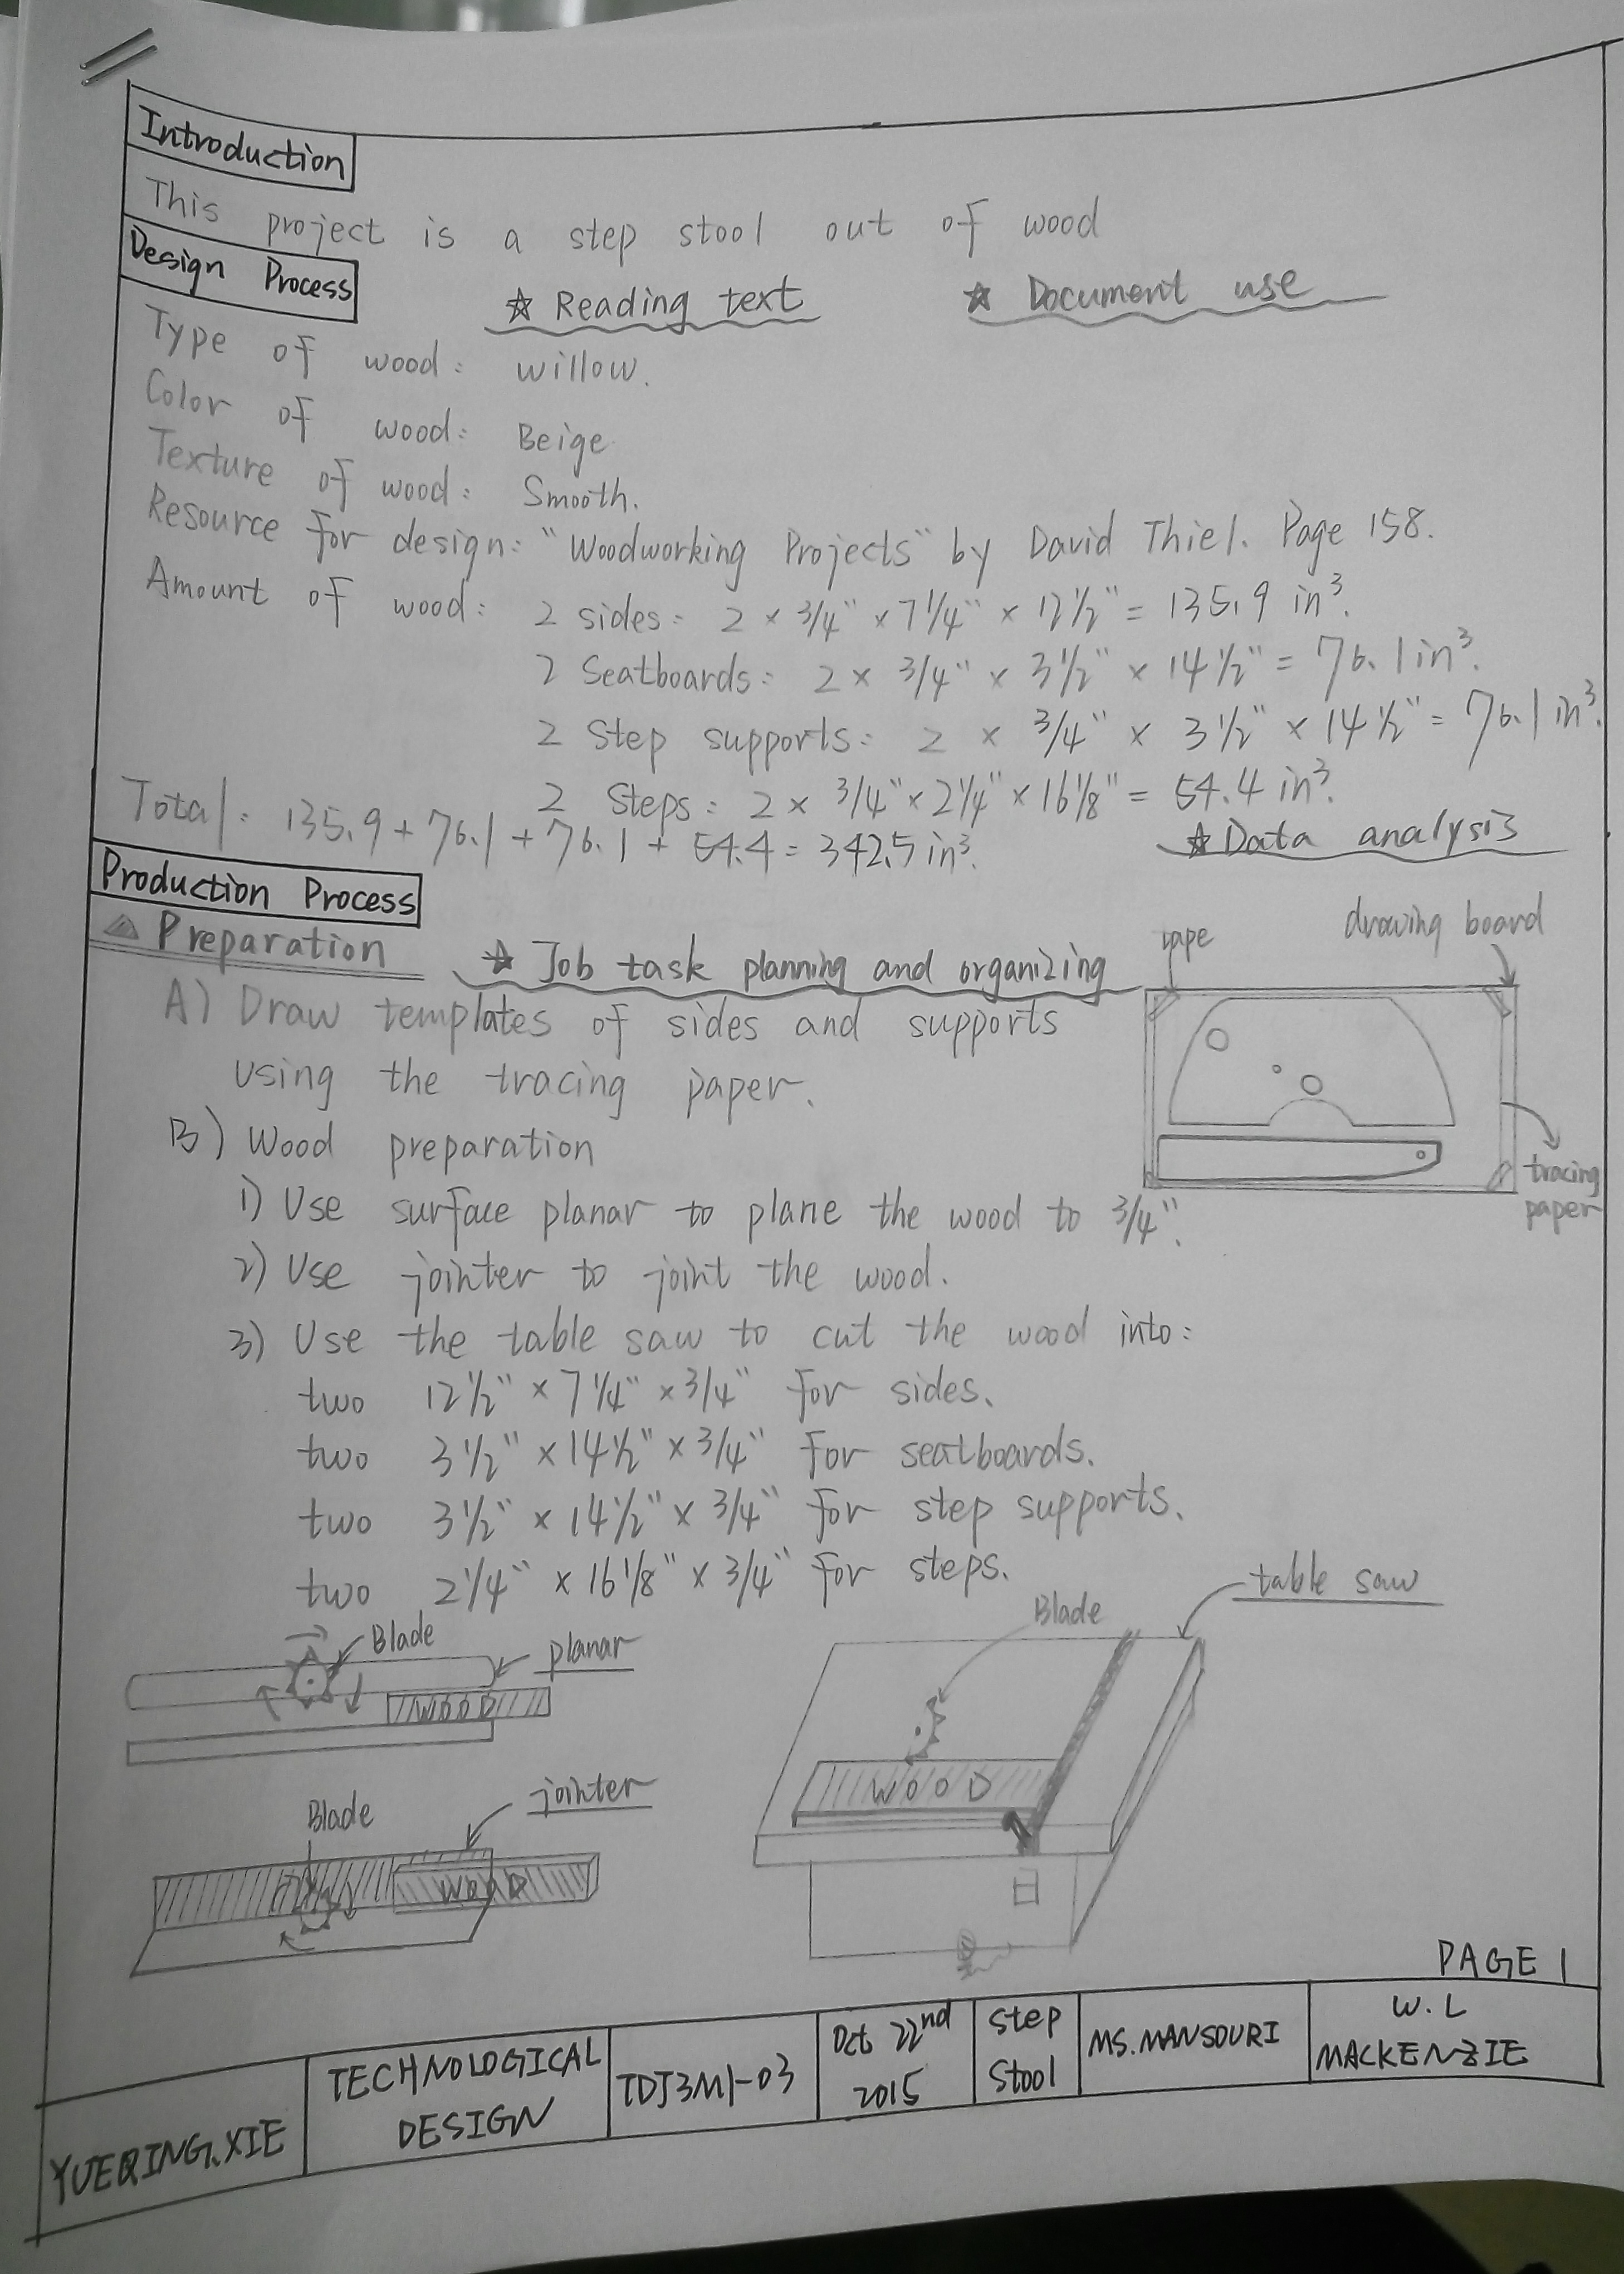 Introduction
This project is a step stool out of wood
Design Process
☆ Reading text
☆ Document use
Type of wood: willow.
Color of wood: Beige
Texture of wood: Smooth.
Resource for design: "Woodworking Projects" by David Thiel. Page 158.
Amount of wood: 2 sides: 2 × 3/4" × 7 1/4" × 12 1/2" = 135.9 in³.
2 Seatboards: 2 × 3/4" × 3 1/2" × 14 1/2" = 76.1 in³.
2 Step supports: 2 × 3/4" × 3 1/2" × 14 1/2" = 76.1 in³.
2 Steps: 2 × 3/4" × 2 1/4" × 16 1/8" = 54.4 in³.
Total: 135.9 + 76.1 + 76.1 + 54.4 = 342.5 in³.
☆ Data analysis
Production Process
Preparation
☆ Job task planning and organizing
tape
drawing board
A) Draw templates of sides and supports
using the tracing paper.
tracing
paper
B) Wood preparation
1) Use surface planar to plane the wood to 3/4".
2) Use jointer to joint the wood.
3) Use the table saw to cut the wood into:
two 12 1/2" × 7 1/4" × 3/4" for sides.
two 3 1/2" × 14 1/2" × 3/4" for seatboards.
two 3 1/2" × 14 1/2" × 3/4" for step supports.
two 2 1/4" × 16 1/8" × 3/4" for steps.
Blade
planar
WOOD
Blade
table saw
WOOD
Blade
jointer
WOOD
PAGE 1
YUEQING.XIE
TECHNOLOGICAL
DESIGN
TDJ3M1-03
Oct 22nd
2015
Step
Stool
MS.MANSOURI
W.L
MACKENZIE